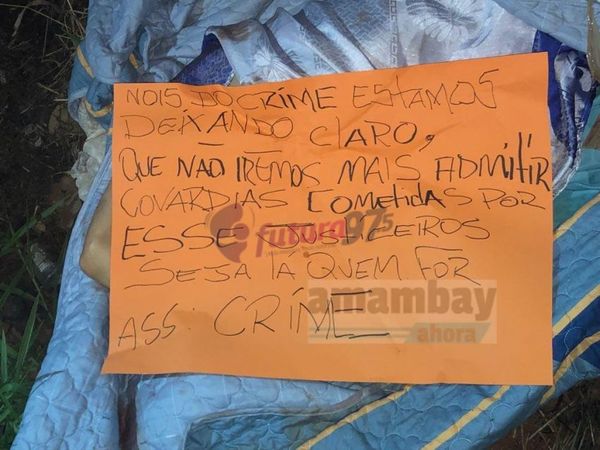 NOIS DO CRIME ESTAMOS
DEIXANDO CLARO,
QUE NÃO IREMOS MAIS ADMITIR
COVARDIAS COMETIDAS POR
ESSE JUSTICEIROS
SEJA LA QUEM FOR
ASS: CRIME
futura 97.5
amambay
ahora